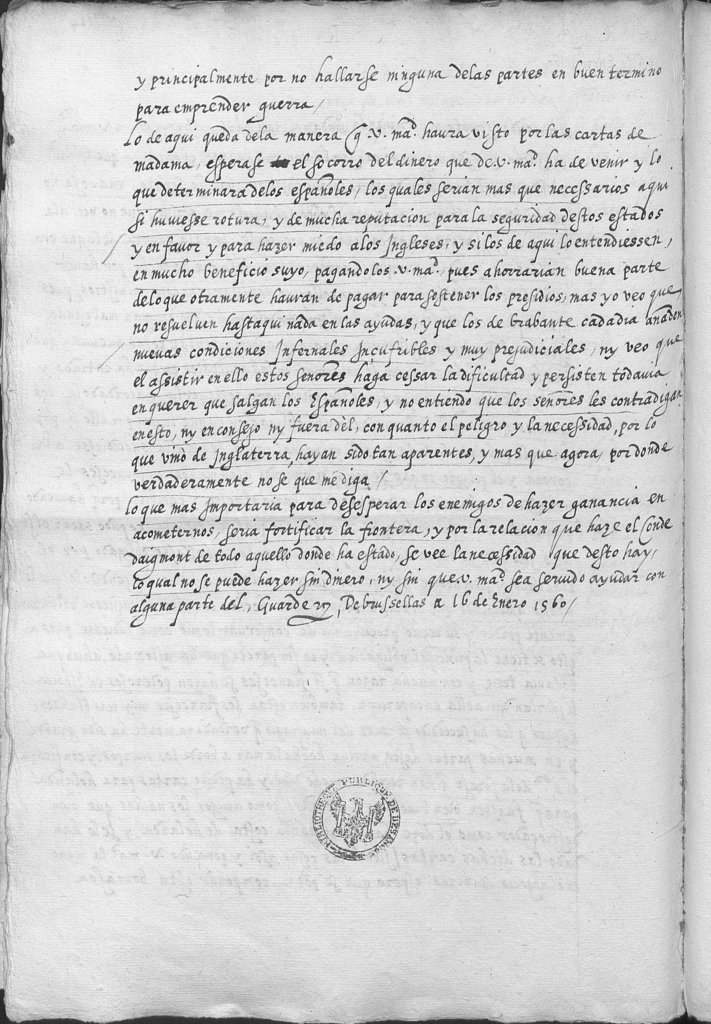 y principalmente por no hallarse ninguna delas partes en buen termino
para emprender guerra /
Lo de aqui queda dela manera q̃ v. ma.d haura visto por las cartas de
madama, esperase el socorro del dinero que de v. ma.d ha de venir y lo
que determinara delos españoles, los quales serian mas que necessarios aqui
si huuiesse rotura, y de mucha reputacion para la seguridad destos estados
y en fauor y para hazer miedo alos Ingleses, y si los de aqui lo entendiessen,
en mucho beneficio suyo, pagandolos v. ma.d, pues ahorrarian buena parte
delo que otramente hauran de pagar para sostener los presidios, mas yo veo que
no resueluen hasta qui nada en las ayudas, y que los de brabante cada dia añaden
nueuas condiciones Infernales Incufribles y muy prejudiciales, ny veo que
el assistir en ello estos señores haga cessar la dificultad y persisten todauia
en querer que salgan los Españoles, y no entiendo que los señores les contradigan
en esto, ny en consejo ny fuera dèl, con quanto el peligro y la necessidad, por lo
que vino de Inglaterra, hayan sido tan aparentes, y mas que agora, por donde
verdaderamente no se que me diga /
lo que mas Importaria para desesperar los enemigos de hazer ganancia en
acometernos, seria fortificar la frontera, y por la relacion que haze el Conde
daigmont de todo aquello donde ha estado, se vee la necessidad que desto hay,
lo qual no se puede hazer sin dinero, ny sin que v. ma.d sea seruido ayudar con
alguna parte del, Guarde, De brussellas a 16 de Enero 1560 /
BIBLIOTHEQUE PUBLIQUE DE BESANÇON